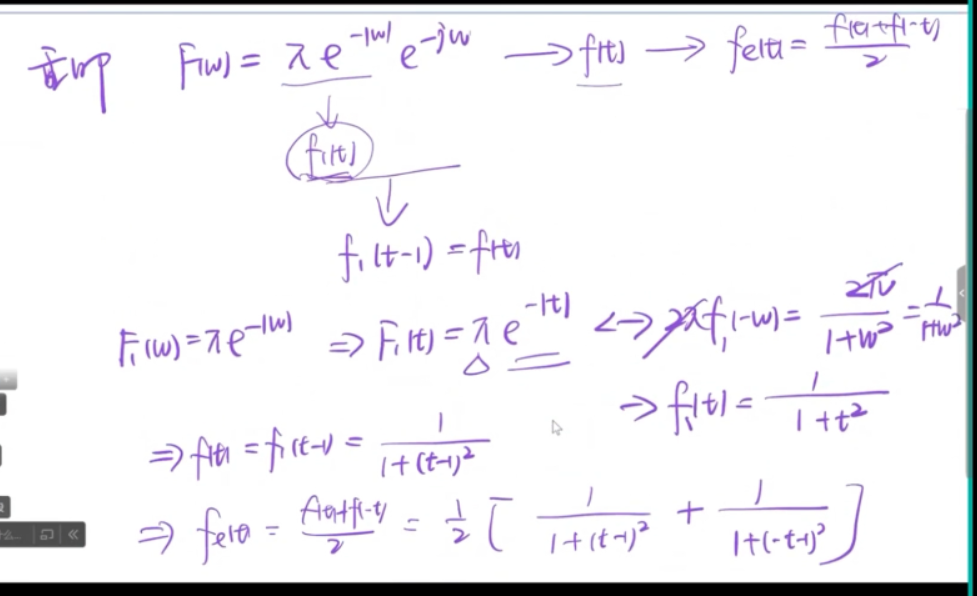 F(w) = πe^{-|w|} e^{-jw} → f(t) → fe(t) = \frac{f(t)+f(-t)}{2}
↓
f₁(t)
↓
f₁(t-1) = f(t)
F₁(w) = πe^{-|w|} ⇒ F₁(t) = πe^{-|t|} ↔ 2πf₁(-w) = \frac{2π}{1+w²} = \frac{1}{1+w²}
⇒ f₁(t) = \frac{1}{1+t²}
⇒ f(t) = f₁(t-1) = \frac{1}{1+(t-1)²}
⇒ fe(t) = \frac{f(t)+f(-t)}{2} = \frac{1}{2} [ \frac{1}{1+(t-1)²} + \frac{1}{1+(-t-1)²} ]